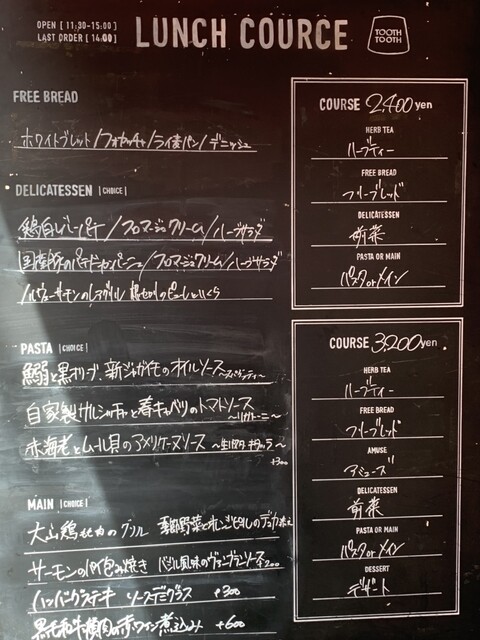 OPEN [ 11:30-15:00 ]
LAST ORDER [ 14:00 ]
LUNCH COURCE
TOOTH TOOTH
FREE BREAD
ホワイトブレッド/フォカッチャ/ライ麦パン/デニッシュ
DELICATESSEN |CHOICE|
鶏白レバーパテ/フロマージュクリーム/ハーブサラダ
国産豚のパテドカンパーニュ/フロマージュクリーム/ハーブサラダ
サーモンのレアグリル のピューレといくら
PASTA |CHOICE|
鰯と黒オリーブ、新ジャガイモのオイルソース ~スパゲッティ~
自家製サルシッチャと春キャベツのトマトソース ~リガトーニ~
赤海老とムール貝のアメリケーヌソース ~生パスタ キタッラ~
+300
MAIN |CHOICE|
大山鶏もも肉のグリル 季節野菜とオレンジ
サーモンのパイ包み焼き バジル風味のヴァンブランソース +200
ハンバーグステーキ ソースデミグラス +300
黒毛和牛頬肉の赤ワイン煮込み +600
COURSE 2,400 yen
HERB TEA
ハーブティー
FREE BREAD
フリーブレッド
DELICATESSEN
前菜
PASTA OR MAIN
パスタ or メイン
COURSE 3,200 yen
HERB TEA
ハーブティー
FREE BREAD
フリーブレッド
AMUSE
アミューズ
DELICATESSEN
前菜
PASTA OR MAIN
パスタ or メイン
DESSERT
デザート